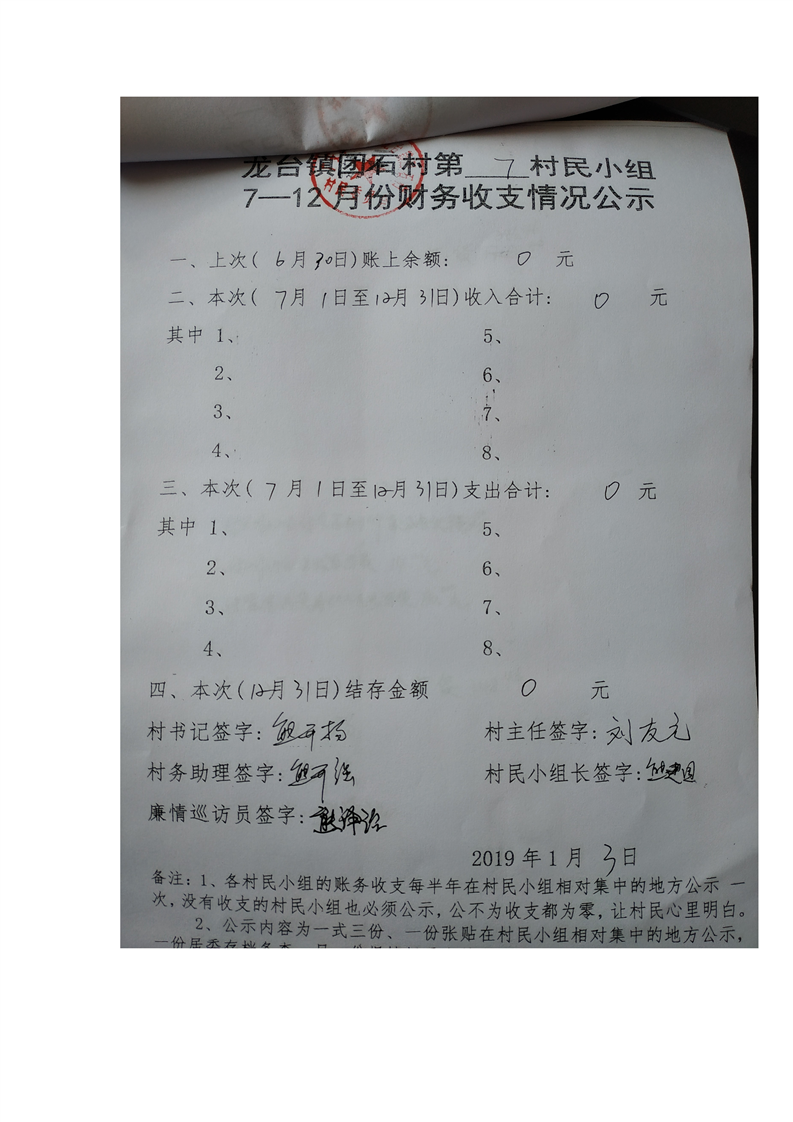 龙台镇团石村第 7 村民小组
7—12月份财务收支情况公示
一、上次(6月30日)账上余额: 0 元
二、本次(7月1日至12月31日)收入合计: 0 元
其中 1、 5、
2、 6、
3、 7、
4、 8、
三、本次(7月1日至12月31日)支出合计: 0 元
其中 1、 5、
2、 6、
3、 7、
4、 8、
四、本次(12月31日)结存金额 0 元
村书记签字: 村主任签字:刘友元
村务助理签字: 村民小组长签字:
廉情巡访员签字:
2019年1月3日
备注:1、各村民小组的账务收支每半年在村民小组相对集中的地方公示一
次,没有收支的村民小组也必须公示,公不为收支都为零,让村民心里明白。
2、公示内容为一式三份、一份张贴在村民小组相对集中的地方公示,